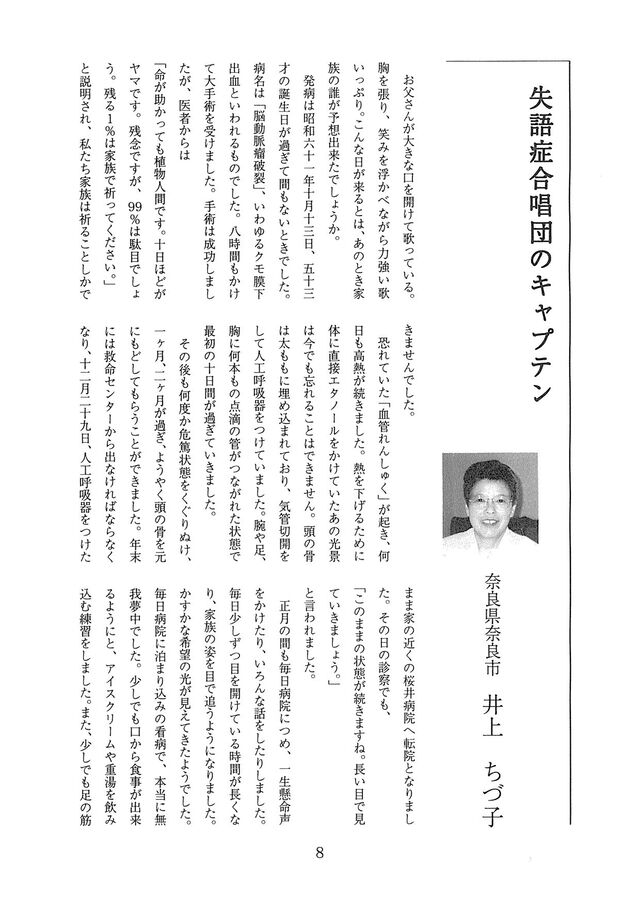 失語症合唱団のキャプテン
奈良県奈良市　井上　ちづ子
お父さんが大きな口を開けて歌っている。
胸を張り、笑みを浮かべながら力強い歌
いっぷり。こんな日が来るとは、あのとき家
族の誰が予想出来たでしょうか。
発病は昭和六十一年十月十三日、五十三
才の誕生日が過ぎて間もないときでした。
病名は「脳動脈瘤破裂」、いわゆるクモ膜下
出血といわれるものでした。八時間もかけ
て大手術を受けました。手術は成功しまし
たが、医者からは
「命が助かっても植物人間です。十日ほどが
ヤマです。残念ですが、99％は駄目でしょ
う。残る1％は家族で祈ってください。」
と説明され、私たち家族は祈ることしかで
きませんでした。
恐れていた「血管れんしゅく」が起き、何
日も高熱が続きました。熱を下げるために
体に直接エタノールをかけていたあの光景
は今でも忘れることはできません。頭の骨
は太ももに埋め込まれており、気管切開を
して人工呼吸器をつけていました。腕や足、
胸に何本もの点滴の管がつながれた状態で
最初の十日間が過ぎていきました。
その後も何度か危篤状態をくぐりぬけ、
一ヶ月、二ヶ月が過ぎ、ようやく頭の骨を元
にもどしてもらうことができました。年末
には救命センターから出なければならなく
なり、十二月二十九日、人工呼吸器をつけた
まま家の近くの桜井病院へ転院となりまし
た。その日の診察でも、
「このままの状態が続きますね。長い目で見
ていきましょう。」
と言われました。
正月の間も毎日病院につめ、一生懸命声
をかけたり、いろんな話をしたりしました。
毎日少しずつ目を開けている時間が長くな
り、家族の姿を目で追うようになりました。
かすかな希望の光が見えてきたようでした。
毎日病院に泊まり込みの看病で、本当に無
我夢中でした。少しでも口から食事が出来
るようにと、アイスクリームや重湯を飲み
込む練習をしました。また、少しでも足の筋
8